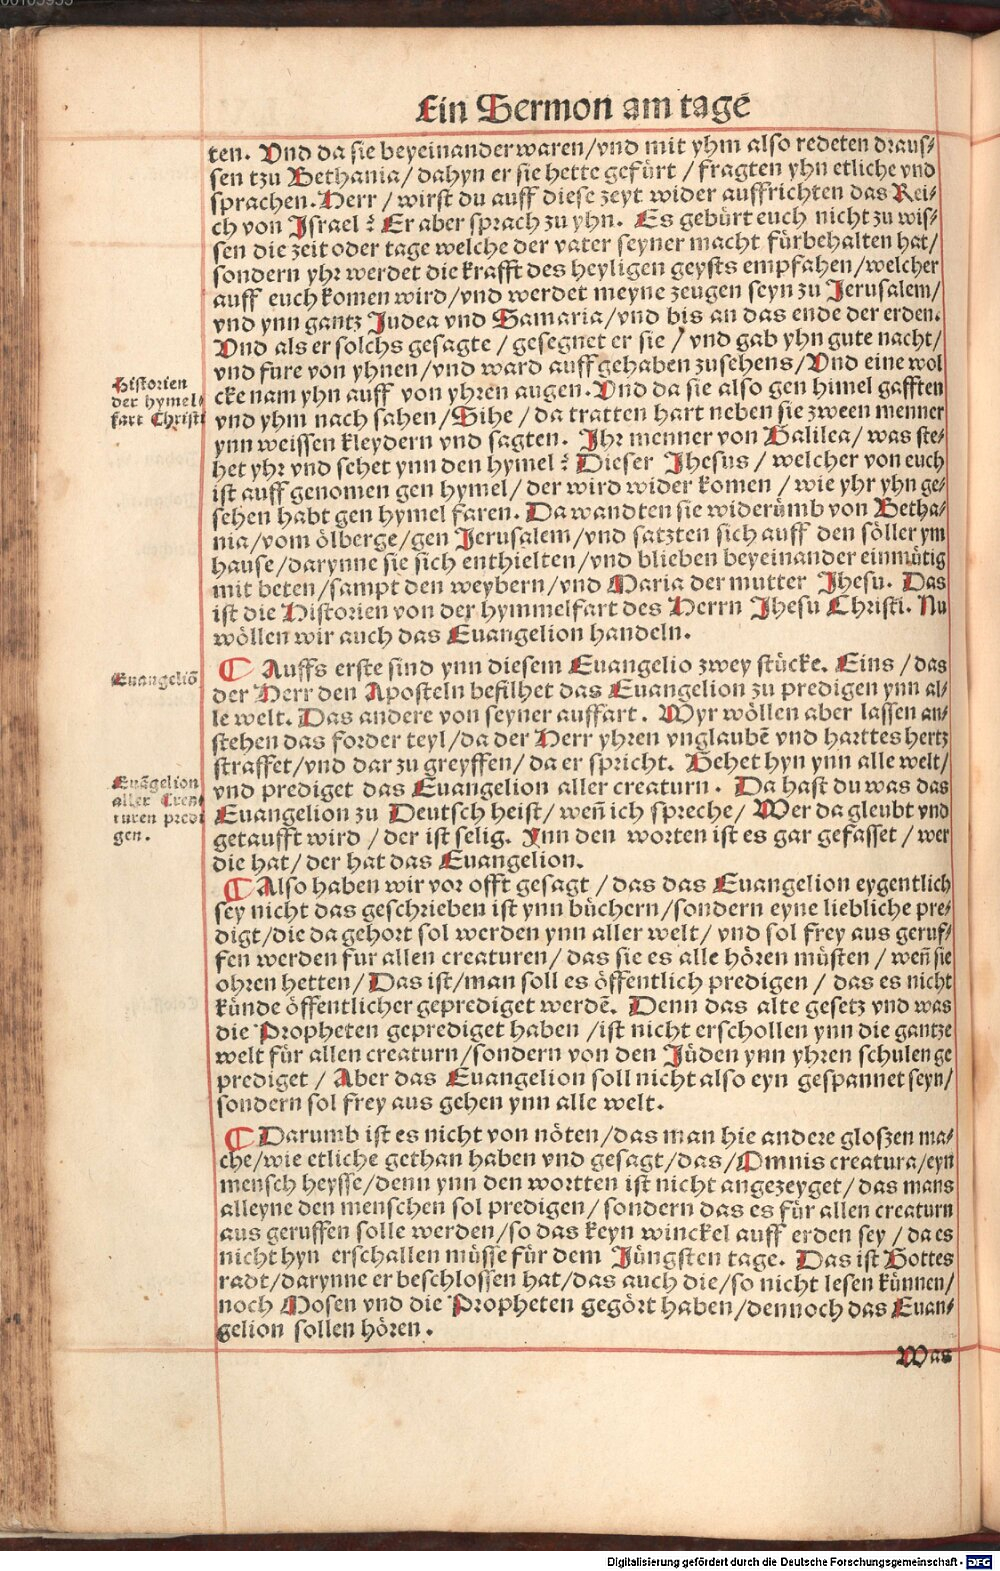 Ein Sermon am tage
ten. Vnd da sie beyeinander waren/vnd mit yhm also redeten draus⸗
sen tzu Bethania/ dahyn er sie hette gefürt / fragten yhn etliche vnd
sprachen. Herr / wirst du auff diese zeyt wider auffrichten das Rei⸗
ch von Israel? Er aber sprach zu yhn. Es gebürt euch nicht zu wis⸗
sen die zeit oder tage welche der vater seyner macht fürbehalten hat/
sondern yhr werdet die krafft des heyligen geysts empfahen/welcher
auff euch komen wird/vnd werdet meyne zeugen seyn zu Jerusalem/
vnd ynn gantz Judea vnd Samaria/vnd bis an das ende der erden.
Vnd als er solchs gesagte / gesegnet er sie / vnd gab yhn gute nacht/
vnd fure von yhnen/vnd ward auff gehaben zusehens/Vnd eine wol
cke nam yhn auff von yhren augen. Vnd da sie also gen himel gafften
vnd yhm nach sahen/Sihe / da tratten hart neben sie zween menner
ynn weissen kleydern vnd sagten. Jhr menner von Galilea/ was ste⸗
het yhr vnd sehet ynn den hymel? Dieser Jhesus / welcher von euch
ist auff genomen gen hymel/ der wird wider komen / wie yhr yhn ge⸗
sehen habt gen hymel faren. Da wandten sie widerümb von Betha⸗
nia/vom ölberge/gen Jerusalem/vnd satzten sich auff den söller ym
hause/darynne sie sich enthielten/vnd blieben beyeinander einmütig
mit beten/sampt den weybern/vnd Maria der mutter Jhesu. Das
ist die Historien von der hymmelfart des Herrn Jhesu Christi. Nu
wöllen wir auch das Euangelion handeln.
Historien
der hymel⸗
fart Christi
¶ Auffs erste sind ynn diesem Euangelio zwey stücke. Eins / das
der Herr den Aposteln befilhet das Euangelion zu predigen ynn al⸗
le welt. Das andere von seyner auffart. Wyr wöllen aber lassen an⸗
stehen das forder teyl/da der Herr yhren vnglaubē vnd harttes hertz
straffet/vnd dar zu greyffen/da er spricht. Gehet hyn ynn alle welt/
vnd prediget das Euangelion aller creaturn. Da hast du was das
Euangelion zu Deutsch heist/ weñ ich spreche/ Wer da gleubt vnd
getaufft wird / der ist selig. Jnn den worten ist es gar gefasset / wer
die hat/ der hat das Euangelion.
Euangeliō
Euāgelion
aller Crea⸗
turen predi
gen.
¶ Also haben wir vor offt gesagt / das das Euangelion eygentlich
sey nicht das geschrieben ist ynn büchern/sondern eyne liebliche pre⸗
digt/die da gehort sol werden ynn aller welt/ vnd sol frey aus geruf⸗
fen werden fur allen creaturen/ das sie es alle hören müsten / weñ sie
ohren hetten/ Das ist/man soll es öffentlich predigen / das es nicht
künde öffentlicher geprediget werdē. Denn das alte gesetz vnd was
die Propheten geprediget haben /ist nicht erschollen ynn die gantze
welt für allen creaturn/sondern von den Jüden ynn yhren schulen ge
prediget / Aber das Euangelion soll nicht also eyn gespannet seyn/
sondern sol frey aus gehen ynn alle welt.
¶ Darumb ist es nicht von nöten/das man hie andere gloszen ma⸗
che/wie etliche gethan haben vnd gesagt/das/Omnis creatura/eyn
mensch heysse/denn ynn den wortten ist nicht angezeyget/ das mans
alleyne den menschen sol predigen/ sondern das es für allen creaturn
aus geruffen solle werden/so das keyn winckel auff erden sey / da es
nicht hyn erschallen müsse für dem Jüngsten tage. Das ist Gottes
radt/darynne er beschlossen hat/das auch die/so nicht lesen künnen/
noch Mosen vnd die Propheten gegört haben/dennoch das Euan⸗
gelion sollen hören.
Was
Digitalisierung gefördert durch die Deutsche Forschungsgemeinschaft - DFG